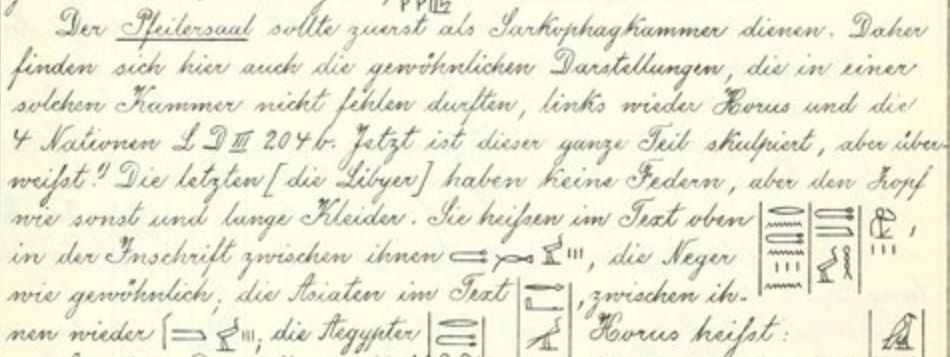 Der Pfeilersaal sollte zuerst als Sarkophagkammer dienen. Daher
finden sich hier auch die gewöhnlichen Darstellungen, die in einer
solchen Kammer nicht fehlen durften, links wieder Horus und die
4 Nationen L D III 204 b. Jetzt ist dieser ganze Teil skulpiert, aber über-
weißt.¹⁾ Die letzten [die Libyer] haben keine Federn, aber den Zopf
wie sonst und lange Kleider. Sie heißen im Text oben ,
in der Inschrift zwischen ihnen , die Neger
wie gewöhnlich; die Asiaten im Text , zwischen ih-
nen wieder ; die Aegypter Horus heißt: